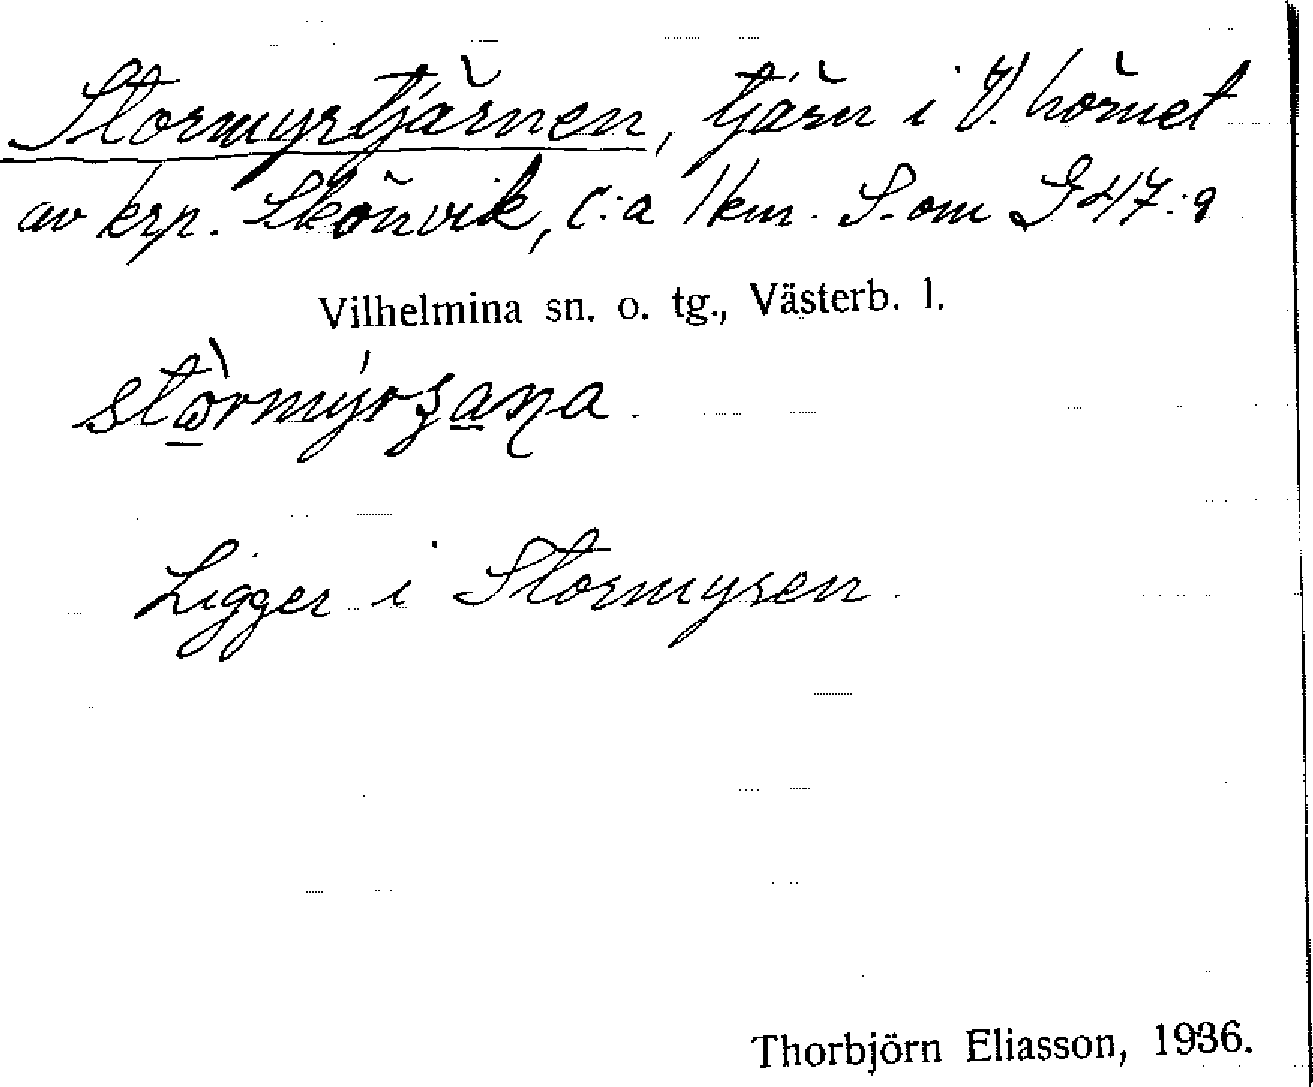 Stormyrtjärnen, tjärn i V. hörnet
av krp. Skönvik, c:a 1 km. S. om G 47:9
Vilhelmina sn. o. tg., Västerb. l.
Ligger i Stormyren.
Thorbjörn Eliasson, 1936.